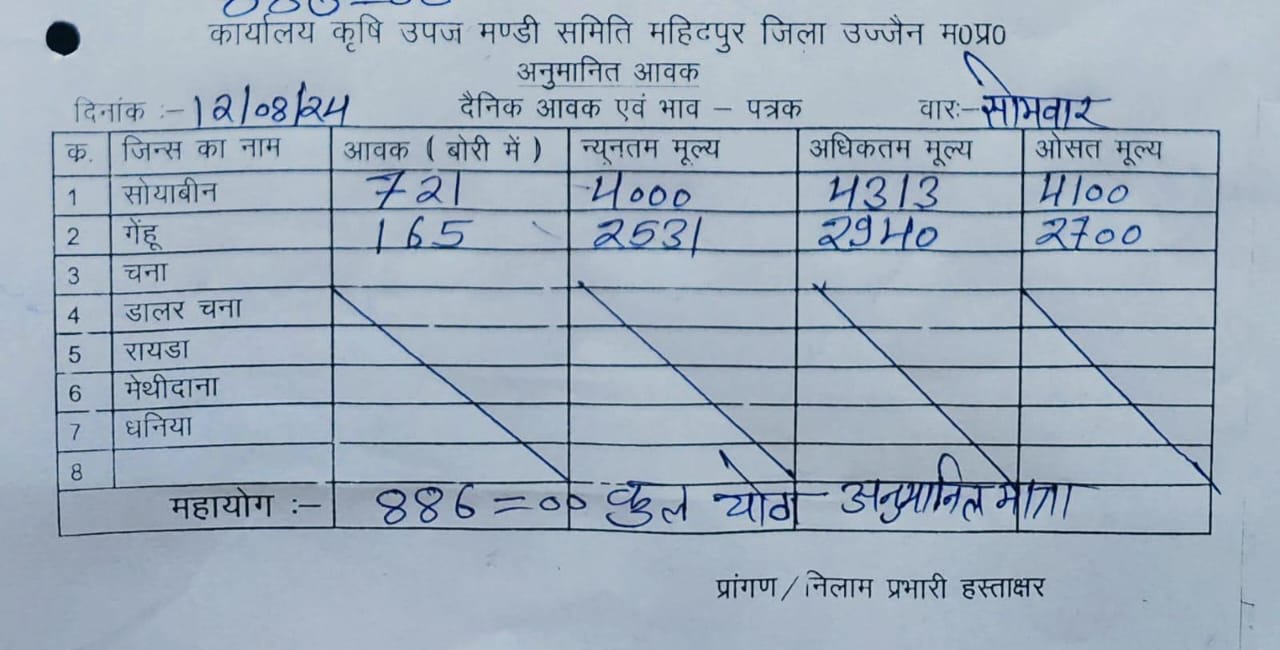 कार्यालय कृषि उपज मण्डी समिति महिदपुर जिला उज्जैन म0प्र0
अनुमानित आवक
दिनांक :- 12/08/24 दैनिक आवक एवं भाव – पत्रक वारः- सोमवार
क. जिन्स का नाम आवक ( बोरी में ) न्यूनतम मूल्य अधिकतम मूल्य ओसत मूल्य
1 सोयाबीन 721 4000 4313 4100
2 गेंहू 165 2531 2940 2700
3 चना
4 डालर चना
5 रायडा
6 मेथीदाना
7 धनिया
8
महायोग :- 886=00 कुल योग अनुमानित मात्रा
प्रांगण / निलाम प्रभारी हस्ताक्षर